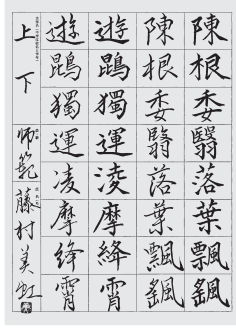 陳根委翳落葉飄颻
陳根委翳落葉飄颻
遊鵾獨運淩摩絳霄
遊鵾獨運凌摩絳霄
上下 師範 藤村美虹